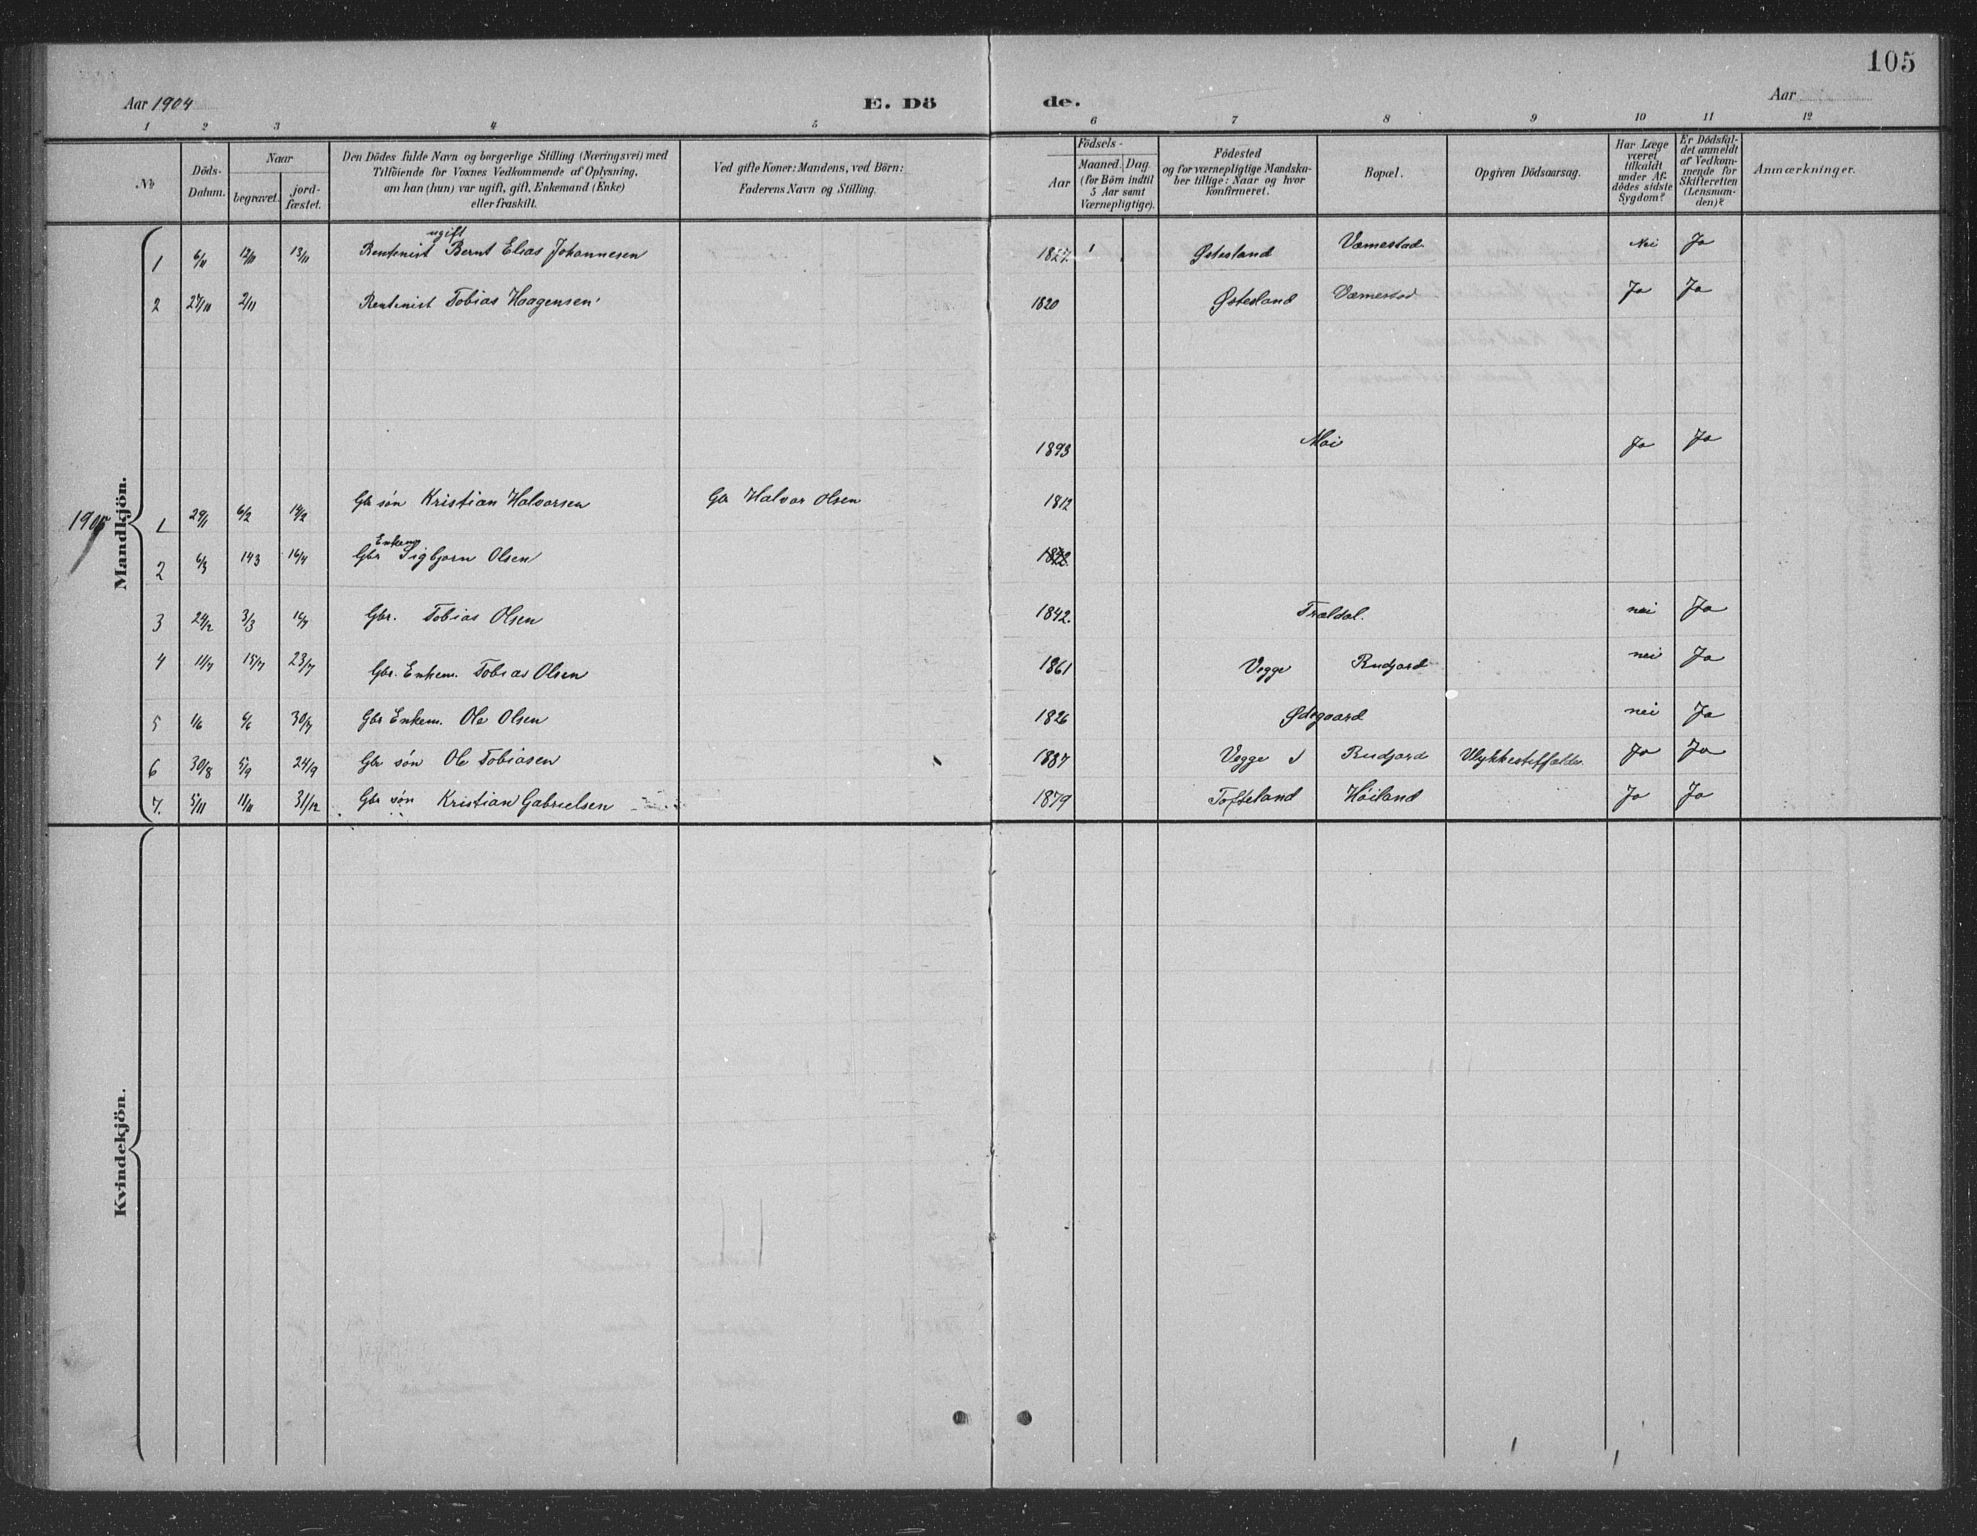 105
Aar 1904 E. Dö de. Aar
1 2 3 4 5 6 7 8 9 10 11 12
No
Döds-Datum.
Naar
begravet.
jord-fæstet.
Den Dödes fulde Navn og borgerlige Stilling (Næringsvei) med
Tilföiende for Voxnes Vedkommende af Oplysning,
om han (hun) var ugift, gift, Enkemand (Enke)
eller fraskilt.
Ved gifte Koner: Mandens, ved Börn:
Faderens Navn og Stilling.
Födsels-
Aar
Maaned. Dag.
(for Börn indtil
5 Aar samt
Værnepligtige).
Födested
og for værnepligtige Mandska-
ber tillige: Naar og hvor
konfirmeret.
Bopæl.
Opgiven Dödsaarsag.
Har Læge
været
tilkaldt
under Af-
dödes sidste
Sygdom?
Er Dödsfal-
det anmeldt
af Vedkom-
mende for
Skifteretten
(Lensman-
den)?
Anmærkninger.
Mandkjön.
ugift
1 6/11 12/11 13/11 Rentenist Bernt Elias Johannesen 1827. Østesland Værnestad Nei Ja
2 27/11 2/11 Rentenist Tobias Haagensen 1820 Østesland Værnestad Ja Ja
1893 Moi Ja Ja
1905
1 29/1 6/2 19/2 Gbr søn Kristian Halvorsen Gbr Halvor Olsen 1812
Enkem
2 6/3 143 16/4 Gbr Sigbjørn Olsen
3 24/2 3/3 Gbr. Tobias Olsen 1842. Trældal. nei Ja
4 11/7 15/7 23/7 Gbr. Enkem. Tobias Olsen 1861 Vegge Rudjord nei Ja
5 1/6 6/6 30/7 Gbr Enkem. Ole Olsen 1826 Ødegaard nei Ja
6 30/8 5/9 24/9 Gbr søn Ole Tobiasen 1887 Vegge Rudjord Ulykkestilfælde. Ja Ja
7. 5/11 11/11 31/12 Gbr søn Kristian Gabrielsen 1879 Tofteland Høiland Ja Ja
Kvindekjön.